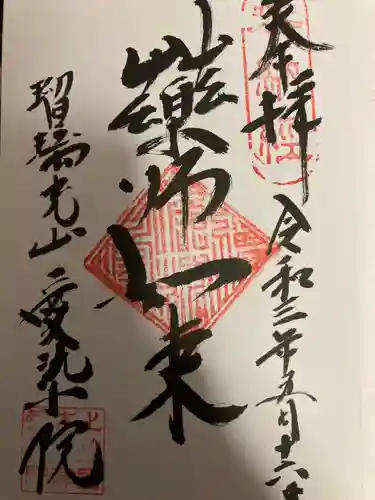 奉拝
令和三年五月十六日
薬師如来
瑠璃光山 愛染院